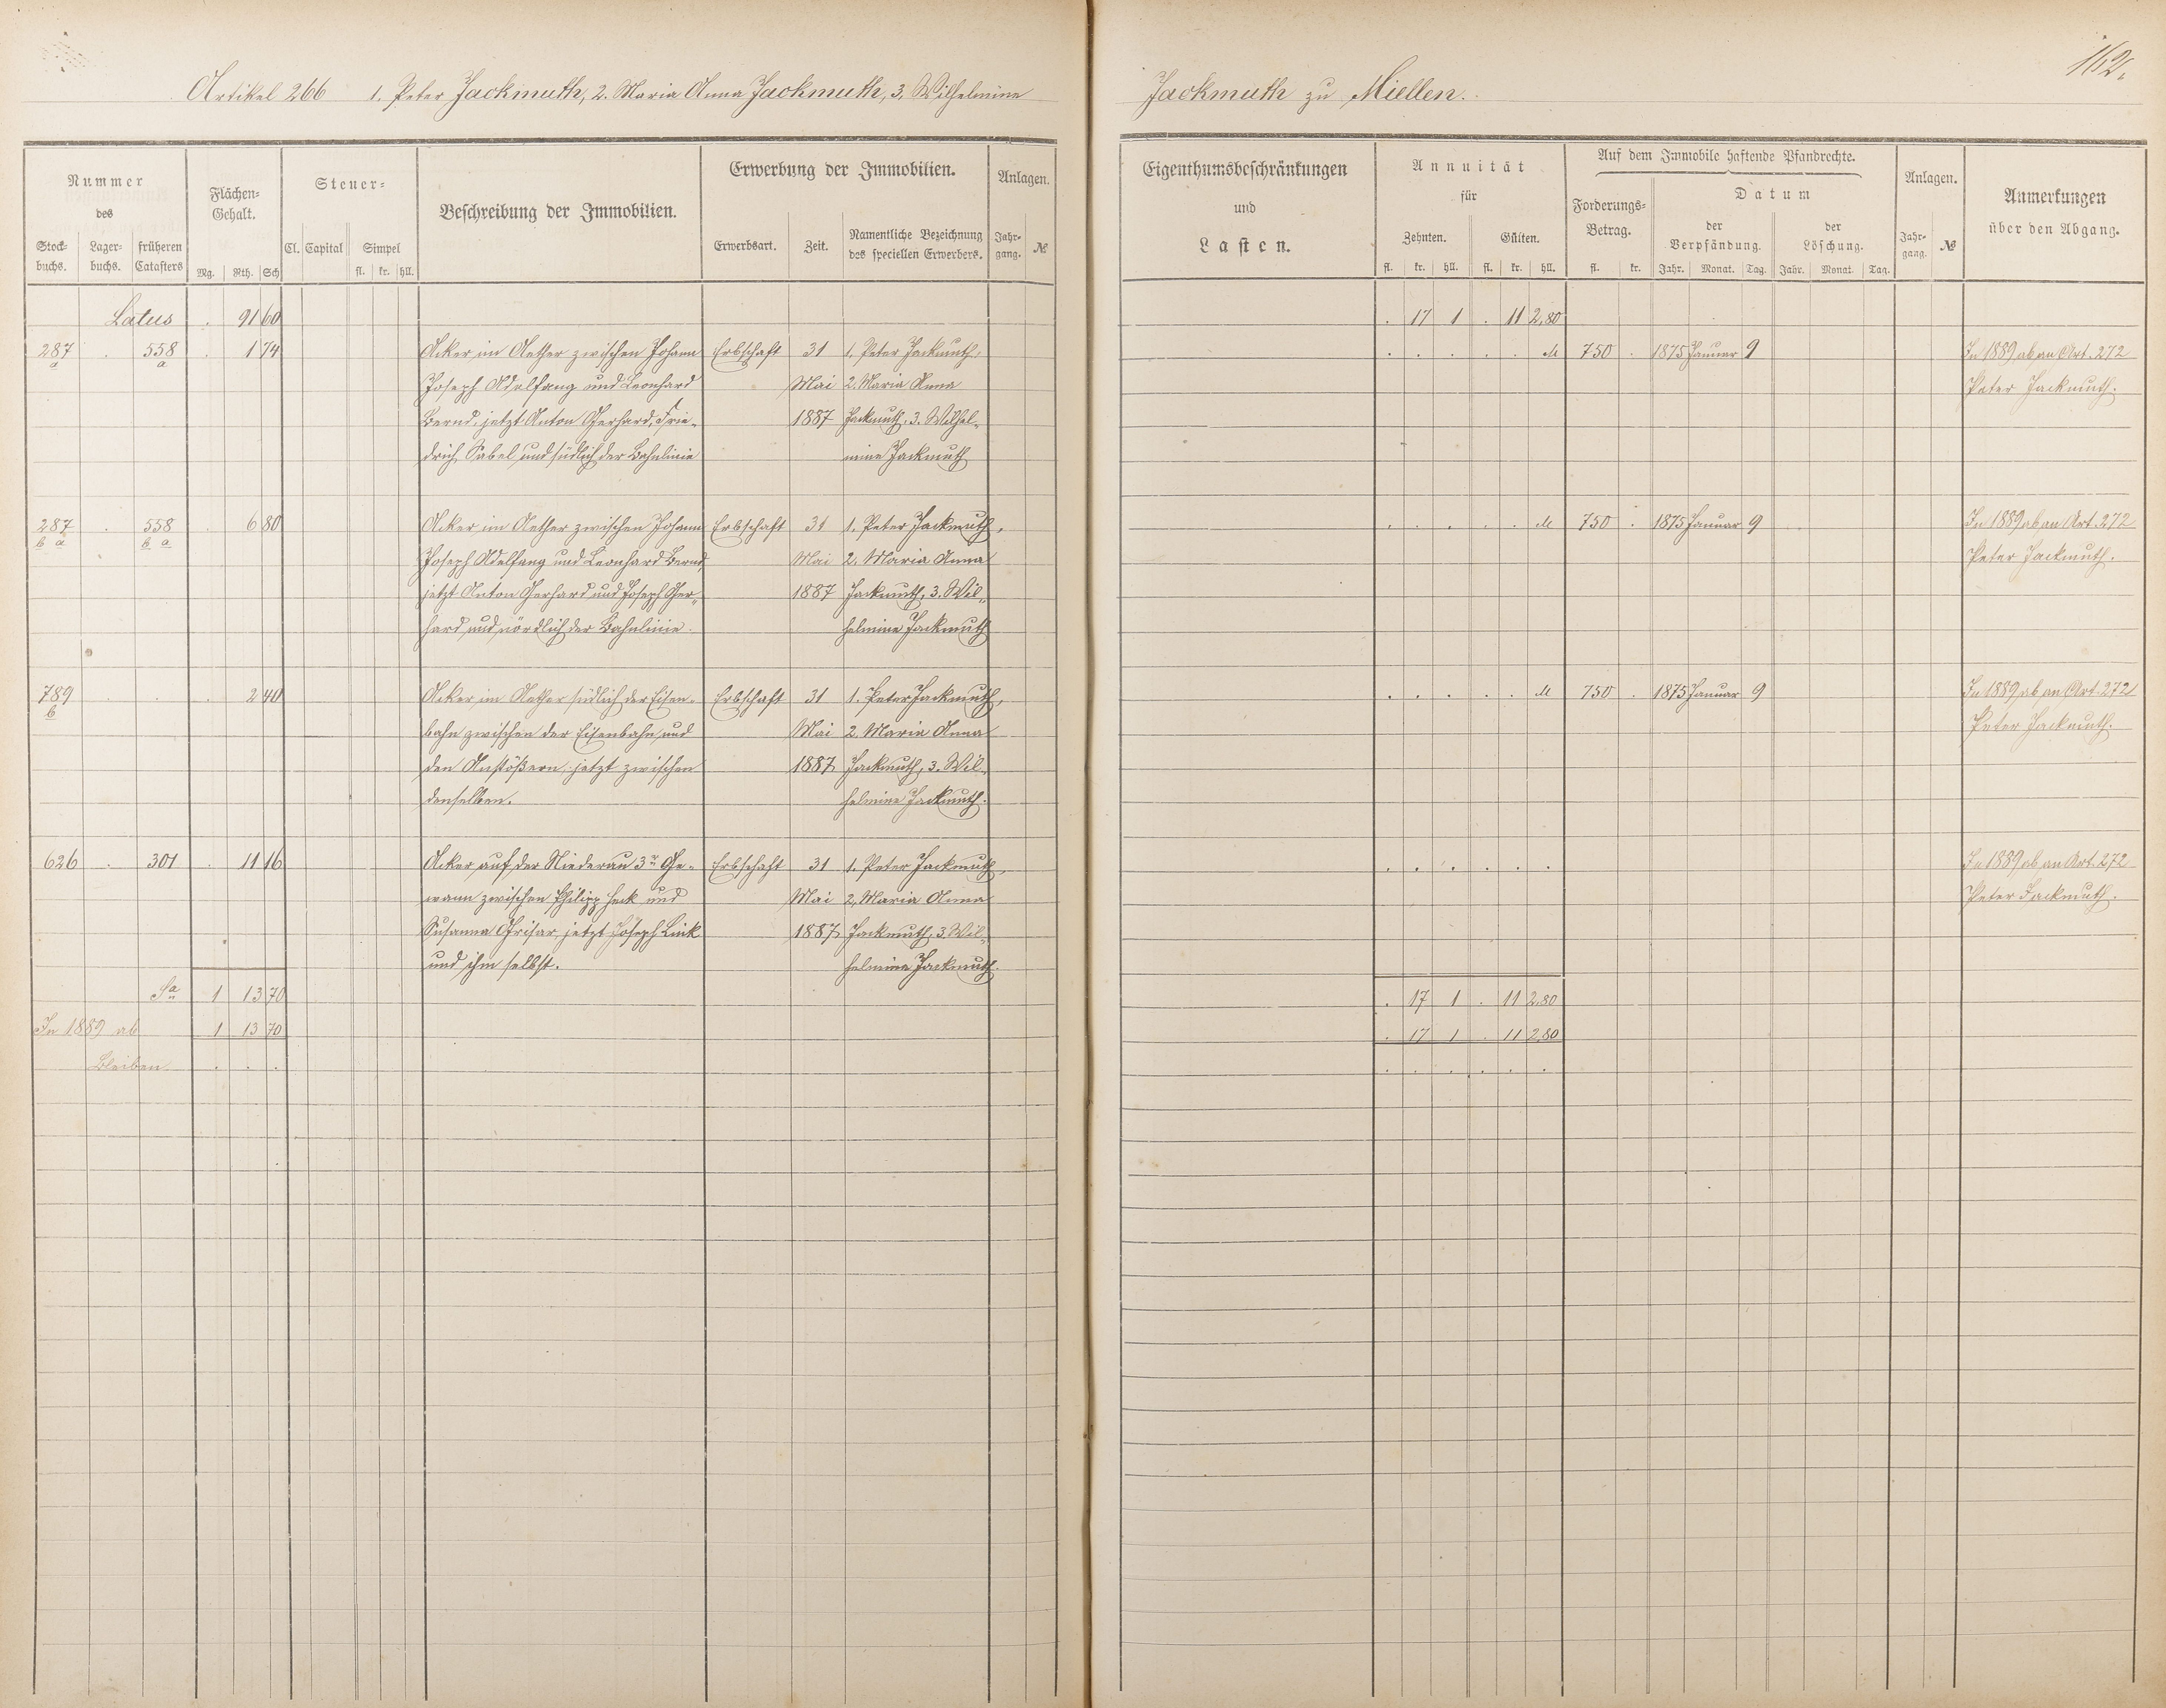 162.
Artikel 266 1. Peter Jackmuth, 2. Maria Anna Jackmuth, 3. Wilhelmine Jackmuth zu Miellen.
Nummer des
Stock-buchs. Lager-buchs. früheren Catasters
Flächen-Gehalt.
Mg. Rth. Sch
Steuer-
Cl. Capital Simpel
fl. kr. hll.
Beschreibung der Immobilien.
Erwerbung der Immobilien.
Erwerbsart. Zeit. Namentliche Bezeichnung des speciellen Erwerbers.
Anlagen.
Jahr-gang. №
Eigenthumsbeschränkungen
und
Lasten.
Annuität
für
Zehnten. Gülten.
fl. kr. hll. fl. kr. hll.
Auf dem Immobile haftende Pfandrechte.
Forderungs-Betrag.
fl. kr.
Datum
der Verpfändung. der Löschung.
Jahr. Monat. Tag. Jahr. Monat. Tag.
Anlagen.
Jahr-gang. №
Anmerkungen
über den Abgang.
Latus . 91 60 . 17 1 . 11 2,80
287 . 558 . 1 74 Acker im Aether zwischen Johann Erbschaft 31 1. Peter Jackmuth, . . . . . M 750 . 1875 Januar 9 In 1889 ab an Art. 272
a a Joseph Adelfang und Leonhard Mai 2. Maria Anna Peter Jackmuth.
Bernd, jetzt Anton Gerhard, Frie- 1887 Jackmuth, 3. Wilhel-
drich Sabel und südlich der Bahnlinie mine Jackmuth
287 . 558 . 6 80 Acker im Aether zwischen Johann Erbschaft 31 1. Peter Jackmuth, . . . . . M 750 . 1875 Januar 9 In 1889 ab an Art. 272
b a b a Joseph Adelfang und Leonhard Bernd Mai 2. Maria Anna Peter Jackmuth.
jetzt Anton Gerhard und Joseph Ger- 1887 Jackmuth, 3. Wil-
hard und nördlich der Bahnlinie. helmine Jackmuth
789 . . . 2 40 Acker im Aether südlich der Eisen- Erbschaft 31 1. Peter Jackmuth, . . . . . M 750 . 1875 Januar 9 In 1889 ab an Art. 272
b bahn zwischen der Eisenbahn und Mai 2. Maria Anna Peter Jackmuth.
den Anstößern, jetzt zwischen 1887 Jackmuth, 3. Wil-
denselben. helmine Jackmuth.
626 . 301 . 11 16 Acker auf der Niederau 3r Ge- Erbschaft 31 1. Peter Jackmuth, . . . . . . In 1889 ab an Art. 272
wann zwischen Philipp Heck und Mai 2. Maria Anna Peter Jackmuth.
Susanna Grisar, jetzt Joseph Link 1887 Jackmuth, 3. Wil-
und ihm selbst. helmine Jackmuth.
Sa 1 13 70 . 17 1 . 11 2,80
In 1889 ab 1 13 70 . 17 1 . 11 2,80
Bleiben . . . . . . . . .